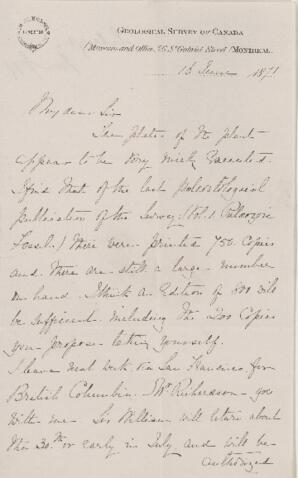 GEOLOGICAL SURVEY OF CANADA
Museum and Office, 76 St Gabriel Street, MONTREAL.
13 June 1871
My dear Sir
The plates of the plants
appear to be very nicely executed.
I find that of the last paleontological
publication of the Survey (Vol. 2 Palaeozoic
Fossils) there were printed 750 Copies
and there are still a large number
on hand. I think an Edition of 800 will
be sufficient including the 200 Copies
you propose taking yourself.
I leave next week via San Francisco for
British Columbia. Mr Richardson goes
with me. Sir William will return about
the 30th or early in July and will be
authorized